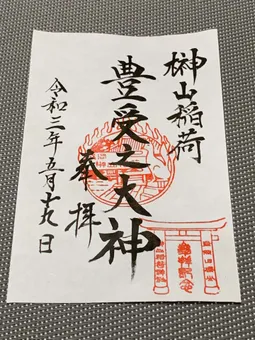 榊山稲荷
豊受之大神
奉拝
令和三年五月十九日